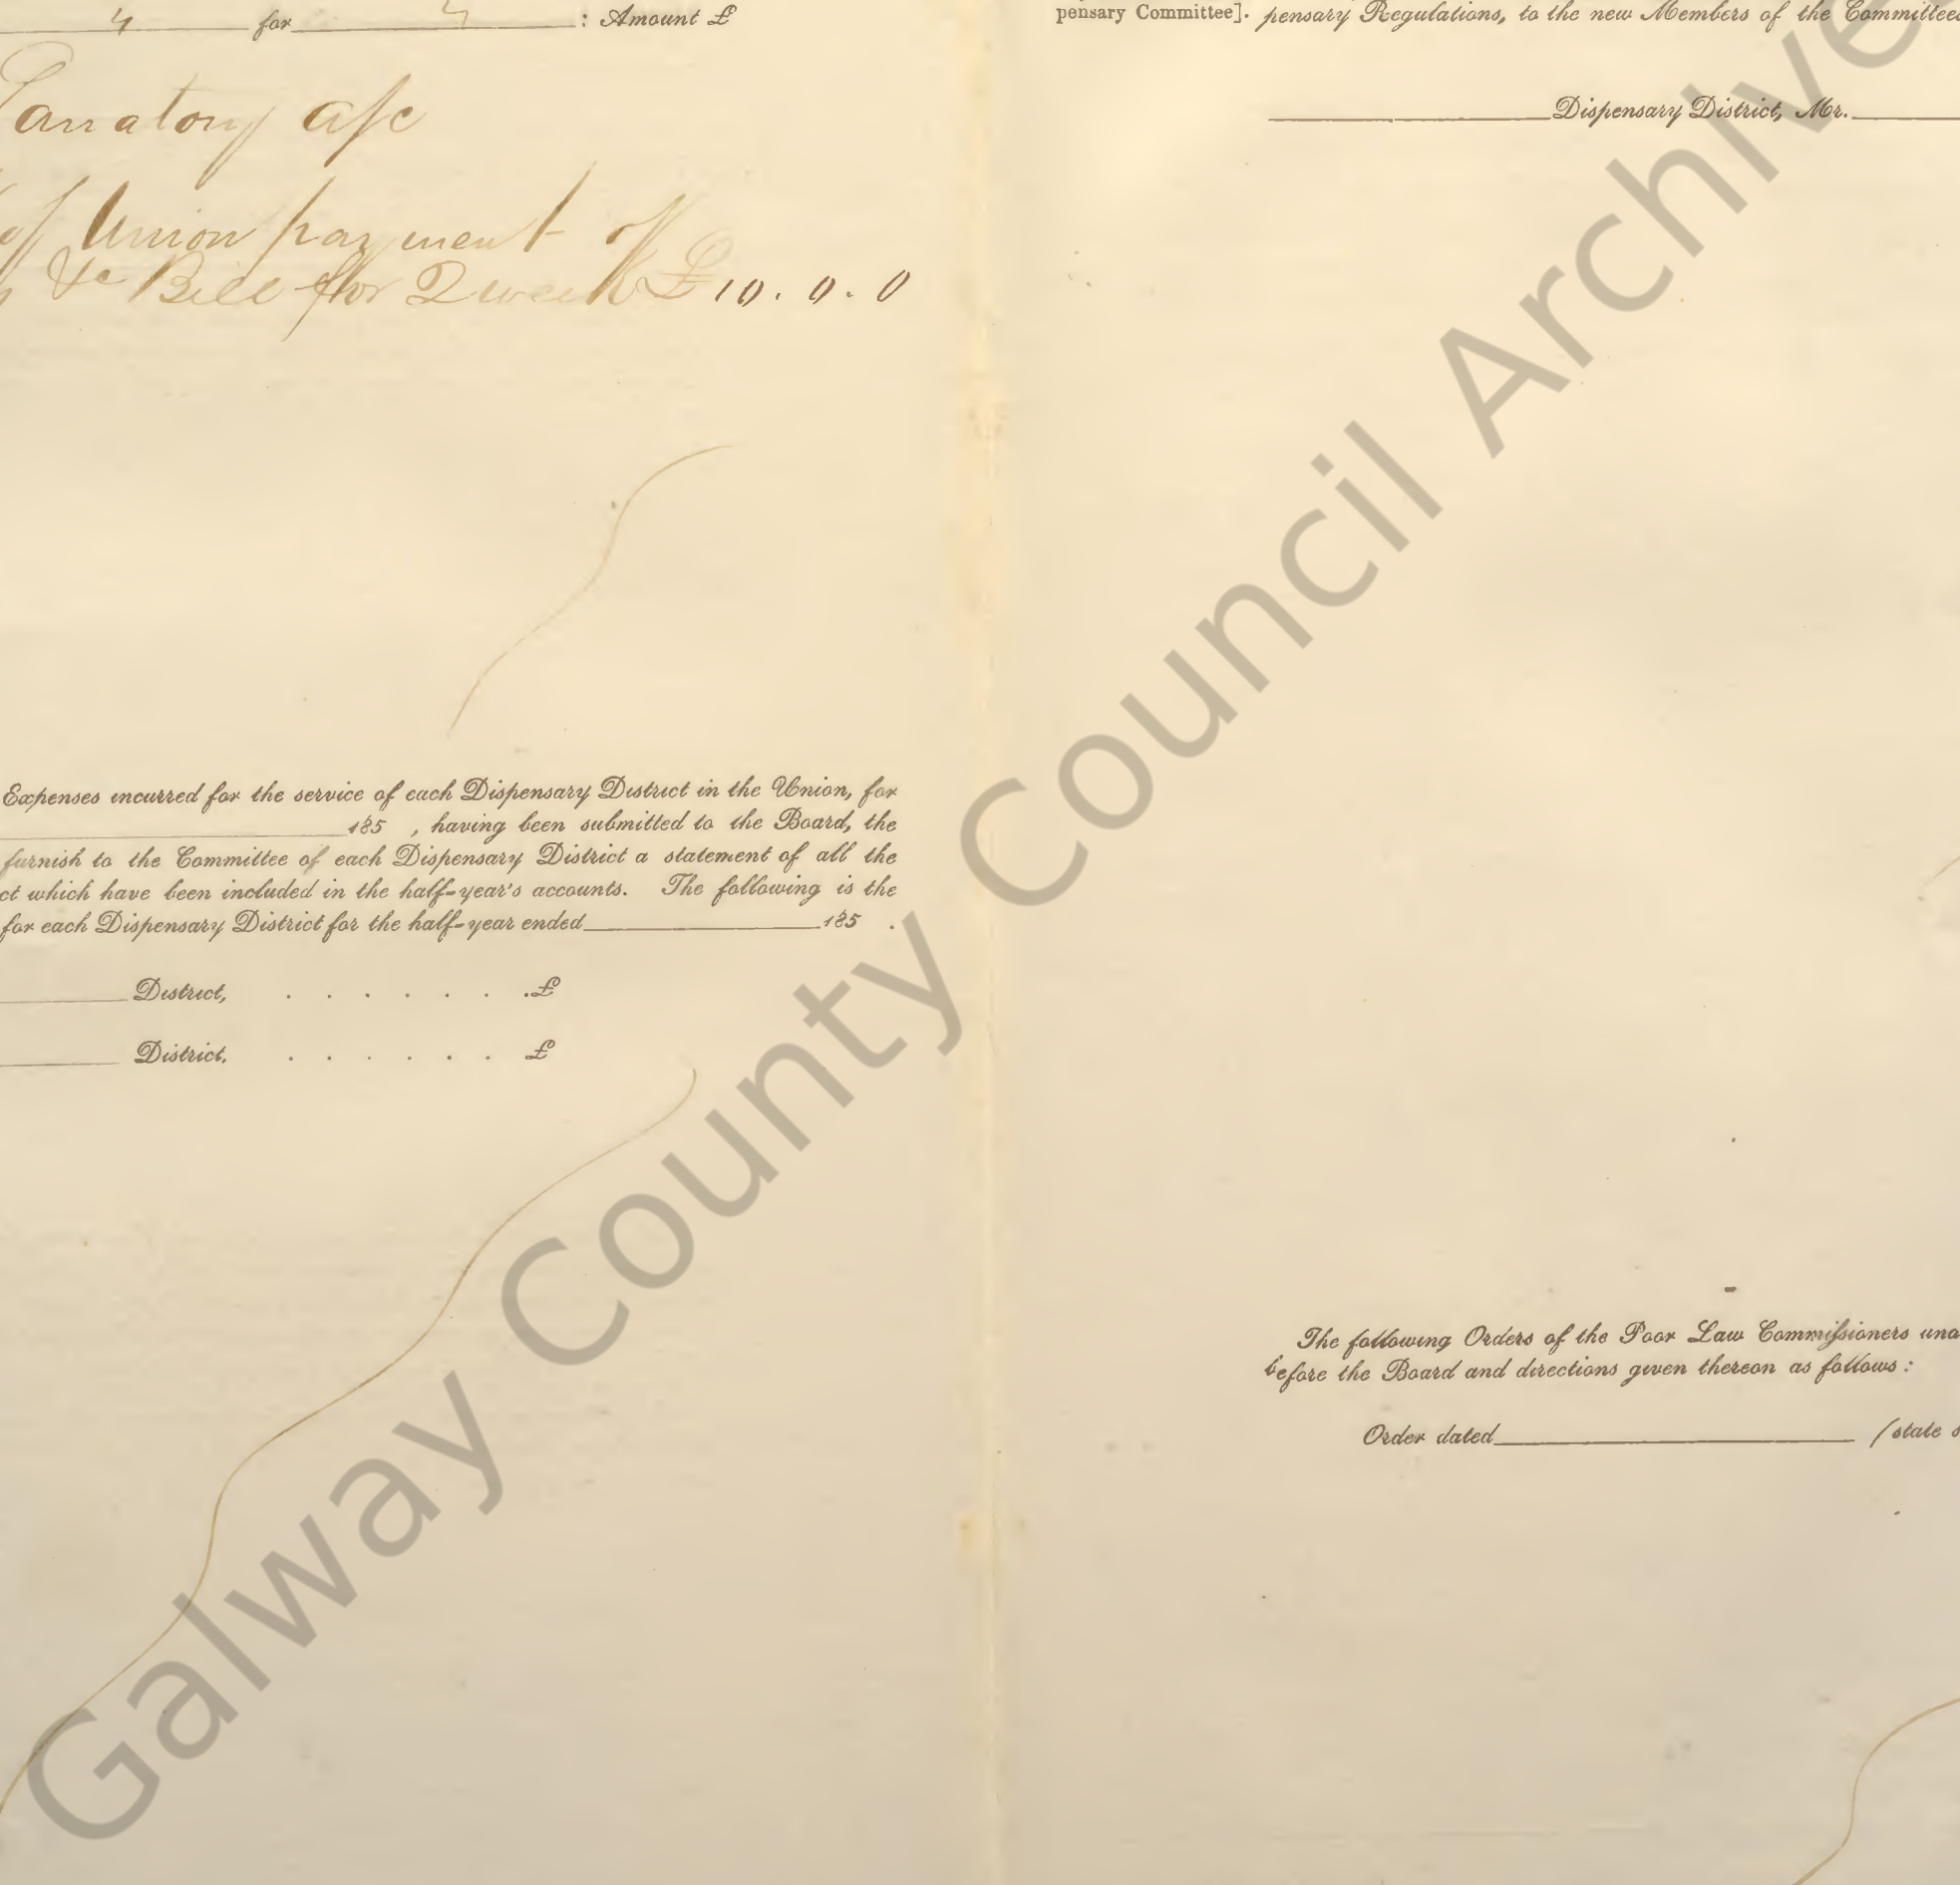 4 for 4 : Amount £
anatory a/c
of Union payment of
&c Bill for 2 week £ 10 . 0 . 0
Expenses incurred for the service of each Dispensary District in the Union, for
185 , having been submitted to the Board, the
furnish to the Committee of each Dispensary District a statement of all the
ct which have been included in the half-year's accounts. The following is the
for each Dispensary District for the half-year ended 185 .
District, . . . . . . . £
District. . . . . . . £
pensary Committee]. pensary Regulations, to the new Members of the Committee
Dispensary District, Mr.
The following Orders of the Poor Law Commissioners una
before the Board and directions given thereon as follows :
Order dated (state s
Galway County Council Archive